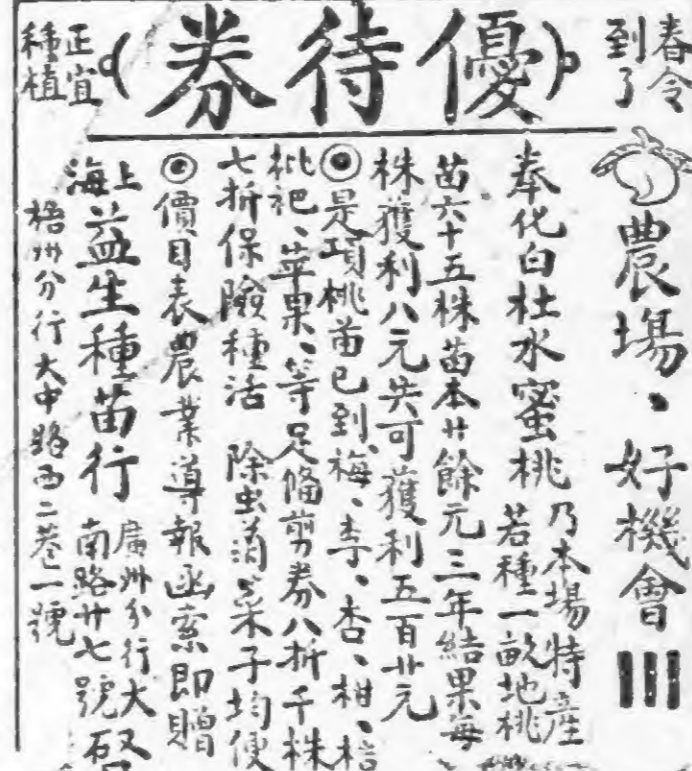 春令
到了
優待券
正宜
種植
農場、好機會
奉化白杜水蜜桃
乃本場特產
若種一畝地桃
苗六十五株苗本廿餘元三年結果每
株獲利八元共可獲利五百廿元
◎是項桃苗已到、梅、李、杏、柑、桔
枇杷、苹果、等足備剪券八折千株
七折保險種活 除虫 菜子均便
◎價目表農業導報函索即贈
上
海
益生種苗行
廣州分行大
南路廿七號
梧州分行大中路西二巷一號